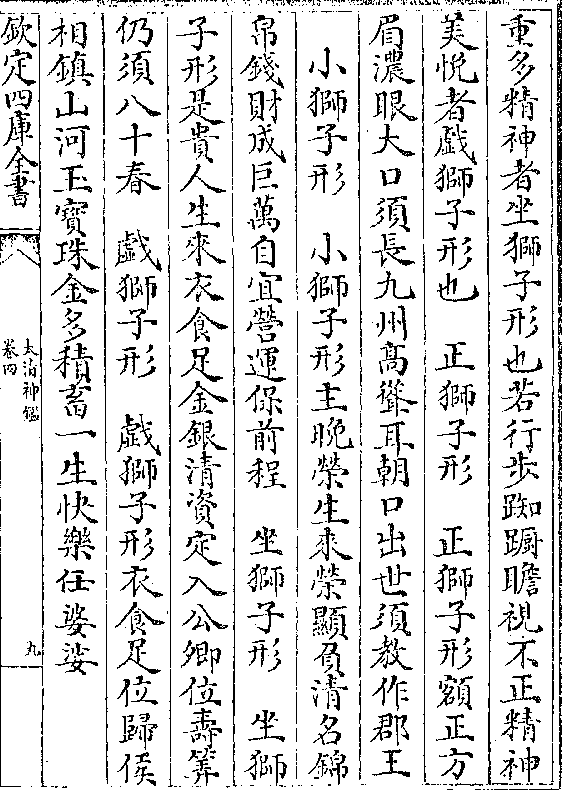 重多精神者坐獅子形也若行步踟蹰瞻視不正精神
美悅者戯獅子形也　正獅子形　正獅子形額正方
眉濃眼大口須長九州髙聳耳朝口出世須教作郡王
小獅子形　小獅子形主晩榮生來榮顯負清名錦
帛錢財成巨萬自宜營運保前程　坐獅子形　坐獅
子形是貴人生來衣食足金銀清資定入公卿位壽筭
仍須八十春　戯獅子形　戯獅子形衣食足位歸侯
相鎮山河玉寶珠金多積畜一生快樂任娑娑
欽定四庫全書
太清神鑑
卷四
九